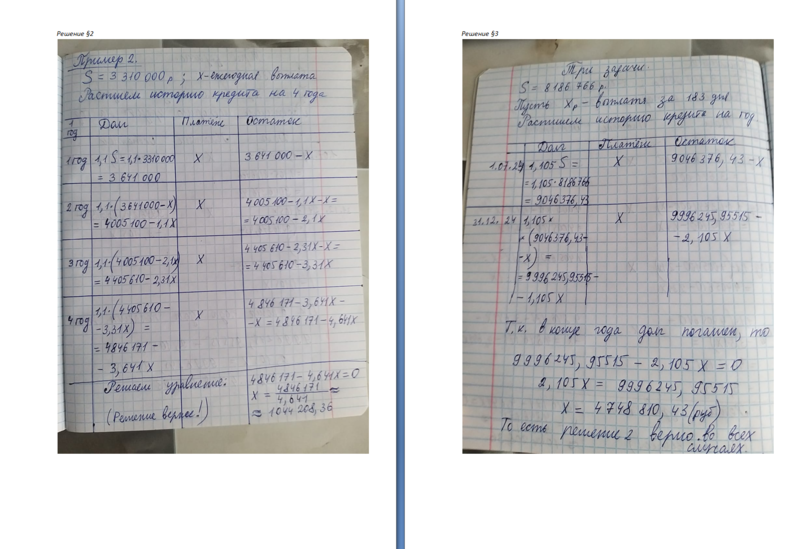 Решение §2
Пример 2.
S = 3 310 000 р ; X-ежегодная выплата
Распишем историю кредита на 4 года
1 год Долг Платёж Остаток
1 год 1,1 S = 1,1·3310000 = 3 641 000 X 3 641 000 – X
2 год 1,1·(3641000-X) = 4005100-1,1X X 4 005 100 - 1,1X - X = = 4005100 - 2,1X
3 год 1,1·(4005100-2,1X) = 4405610-2,31X X 4 405 610 - 2,31X-X = = 4405610-3,31X
4 год 1,1·(4405610 - -3,31X) = = 4846171 - - 3,641X X 4 846 171 - 3,641X - -X = 4846171-4,641X
Решаем уравнение.
4846171 - 4,641X = 0
X = 4846171 / 4,641 ≈
(Решение верное!) ≈ 1044208,36
Решение §3
Три задачи
S = 8186 766 р
Пусть Xр - выплата за 183 дня
Распишем историю кредита на год
Долг Платёж Остаток
1.07.24 1,105 S = = 1,105·8186766 = 9046376,43 X 9046376,43 - X
31.12.24 1,105× ×(9046376,43- -X) = = 9996245,95515 - - 1,105X X 9996245,95515 - - 2,105X
Т.к. в конце года долг погашен, то
9996245,95515 - 2,105X = 0
2,105X = 9996245,95515
X = 4748810,43 (руб)
То есть решение 2 верно во всех
случаях.